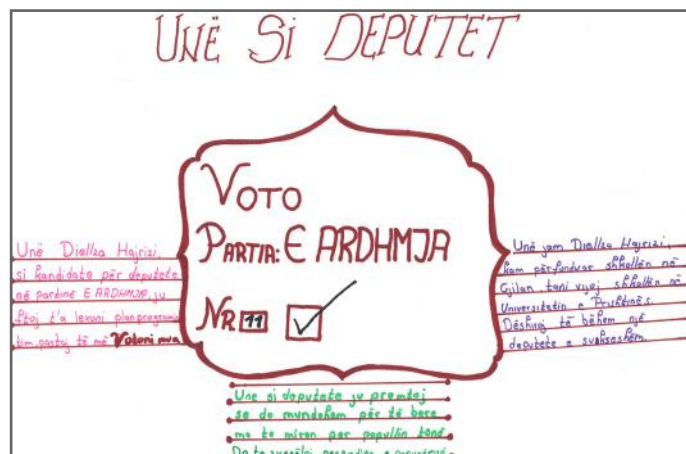 UNË SI DEPUTET
VOTO
PARTIA: E ARDHMJA
NR 11
Unë Diellza Hajrizi,
si kandidate për deputete
në partinë E ARDHMJA, ju
ftoj t'a lexoni planprogramin
tim pastaj të më Votoni mua
Unë jam Diellza Hajrizi,
kam përfunduar shkollën në
Gjilan tani vijoj shkollën në
Universitetin e Prishtinës.
Dëshiroj të bëhem një
deputete e suksesshme
Une si deputete ju premtoj
se do mundohem për të bere
me te miren per popullin tonë
Do te